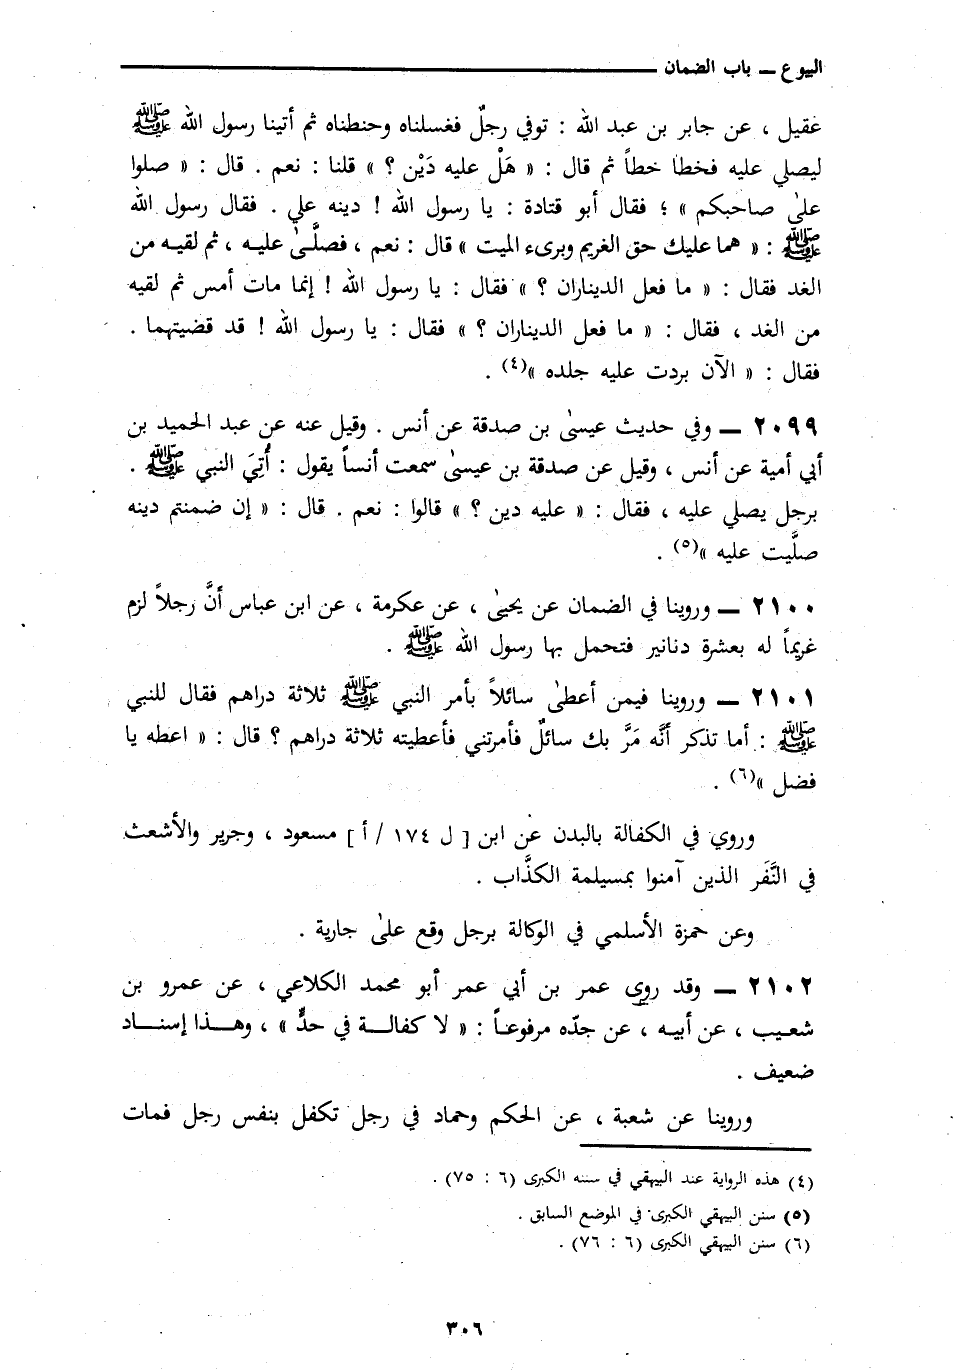 البيوع ـ باب الضمان
عقيل ، عن جابر بن عبد الله : توفي رجلٌ فغسلناه وحنطناه ثم أتينا رسول الله ﷺ
ليصلي عليه فخطا خطاً ثم قال : « هَلْ عليه دَيْن ؟ » قلنا : نعم . قال : « صلوا
علىٰ صاحبكم » ؛ فقال أبو قتادة : يا رسول الله ! دينه علي . فقال رسول الله
ﷺ : « هما عليك حق الغريم وبرىء الميت » قال : نعم ، فصلَّىٰ عليه ، ثم لقيه من
الغد فقال : « ما فعل الديناران ؟ » فقال : يا رسول الله ! إنما مات أمس ثم لقيه
من الغد ، فقال : « ما فعل الديناران ؟ » فقال : يا رسول الله ! قد قضيتهما .
فقال : « الآن بردت عليه جلده »(٤) .
٢٠٩٩ ـ وفي حديث عيسىٰ بن صدقة عن أنس . وقيل عنه عن عبد الحميد بن
أبي أمية عن أنس ، وقيل عن صدقة بن عيسىٰ سمعت أنساً يقول : أُتِيَ النبي ﷺ .
برجل يصلي عليه ، فقال : « عليه دين ؟ » قالوا : نعم . قال : « إن ضمنتم دينه
صلَّيت عليه »(٥) .
٢١٠٠ ـ وروينا في الضمان عن يحيىٰ ، عن عكرمة ، عن ابن عباس أنَّ رجلاً لزم
غريماً له بعشرة دنانير فتحمل بها رسول الله ﷺ .
٢١٠١ ـ وروينا فيمن أعطىٰ سائلاً بأمر النبي ﷺ ثلاثة دراهم فقال للنبي
ﷺ : أما تذكر أنَّه مَرَّ بك سائلٌ فأمرتني فأعطيته ثلاثة دراهم ؟ قال : « اعطه يا
فضل »(٦) .
وروي في الكفالة بالبدن عن ابن [ ل ١٧٤ / أ ] مسعود ، وجرير والأشعث
في النَّفَر الذين آمنوا بمسيلمة الكذَّاب .
وعن حمزة الأسلمي في الوكالة برجل وقع علىٰ جارية .
٢١٠٢ ـ وقد روى عمر بن أبي عمر أبو محمد الكلاعي ، عن عمرو بن
شعيب ، عن أبيه ، عن جدّه مرفوعاً : « لا كفالة في حدٍّ » ، وهذا إسناد
ضعيف .
وروينا عن شعبة ، عن الحكم وحماد في رجل تكفل بنفس رجل فمات
(٤) هذه الرواية عند البيهقي في سننه الكبرى (٦ : ٧٥) .
(٥) سنن البيهقي الكبرى في الموضع السابق .
(٦) سنن البيهقي الكبرى (٦ : ٧٦) .
٣٠٦